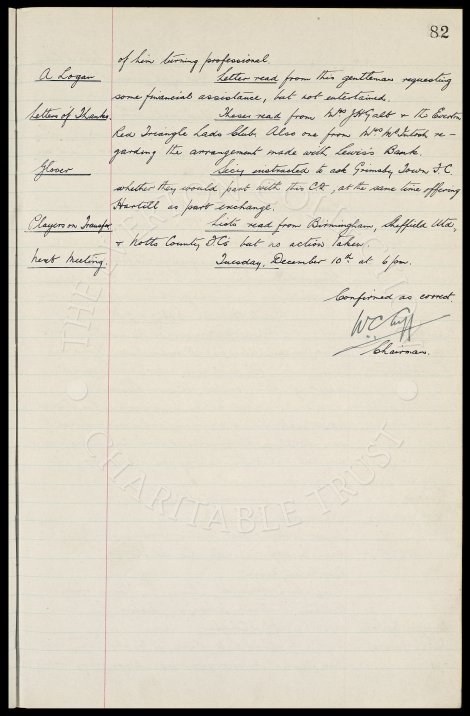 82
of him turning professional.
A Logan Letter read from this gentleman requesting
some financial assistance, but not entertained.
Letters of Thanks. These read from Mrs J Hyatt & the Everton
Red Triangle Lads Club. Also one from Mrs McIntosh re-
garding the arrangement made with Lewis's Bank.
Glover Secy instructed to ask Grimsby Town F.C.
whether they would part with this C.H., at the same time offering
Hartill as part exchange.
Players on Transfer Lists read from Birmingham, Sheffield Utd,
& Notts County F.Cs but no action taken.
Next Meeting. Tuesday, December 10th at 6 pm.
Confirmed as correct.
W.C. Cuff
Chairman.
CHARITABLE TRUST